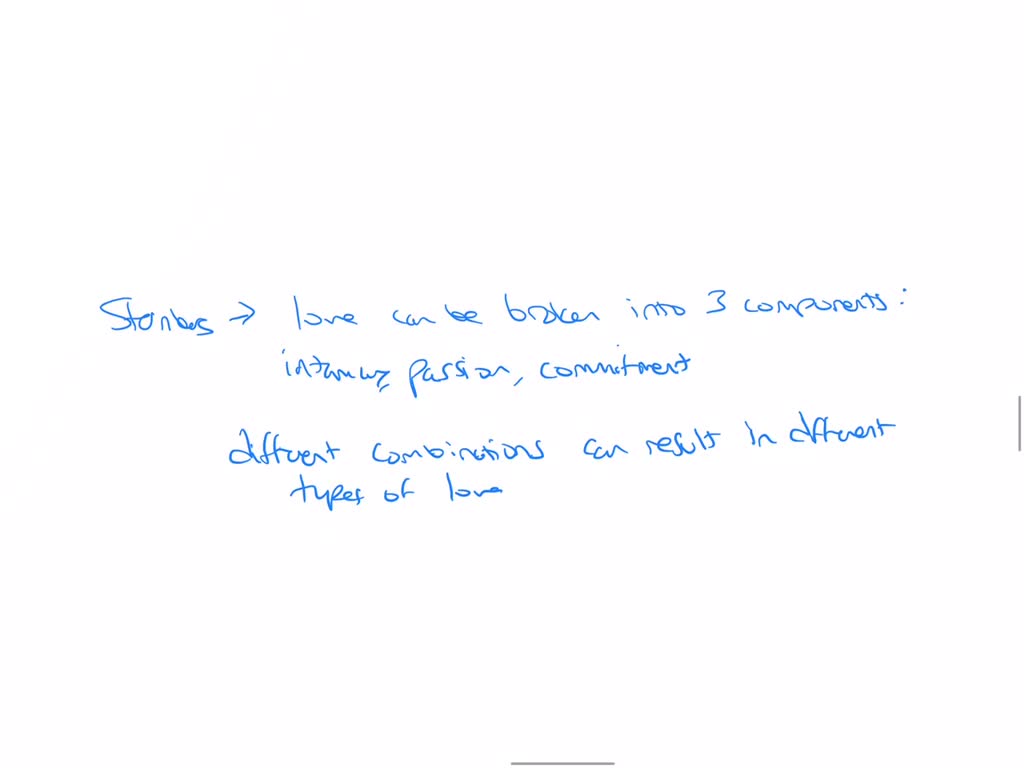 → love can be broken into 3 components:
intimacy, passion, commitment
different combinations can result in different
types of love